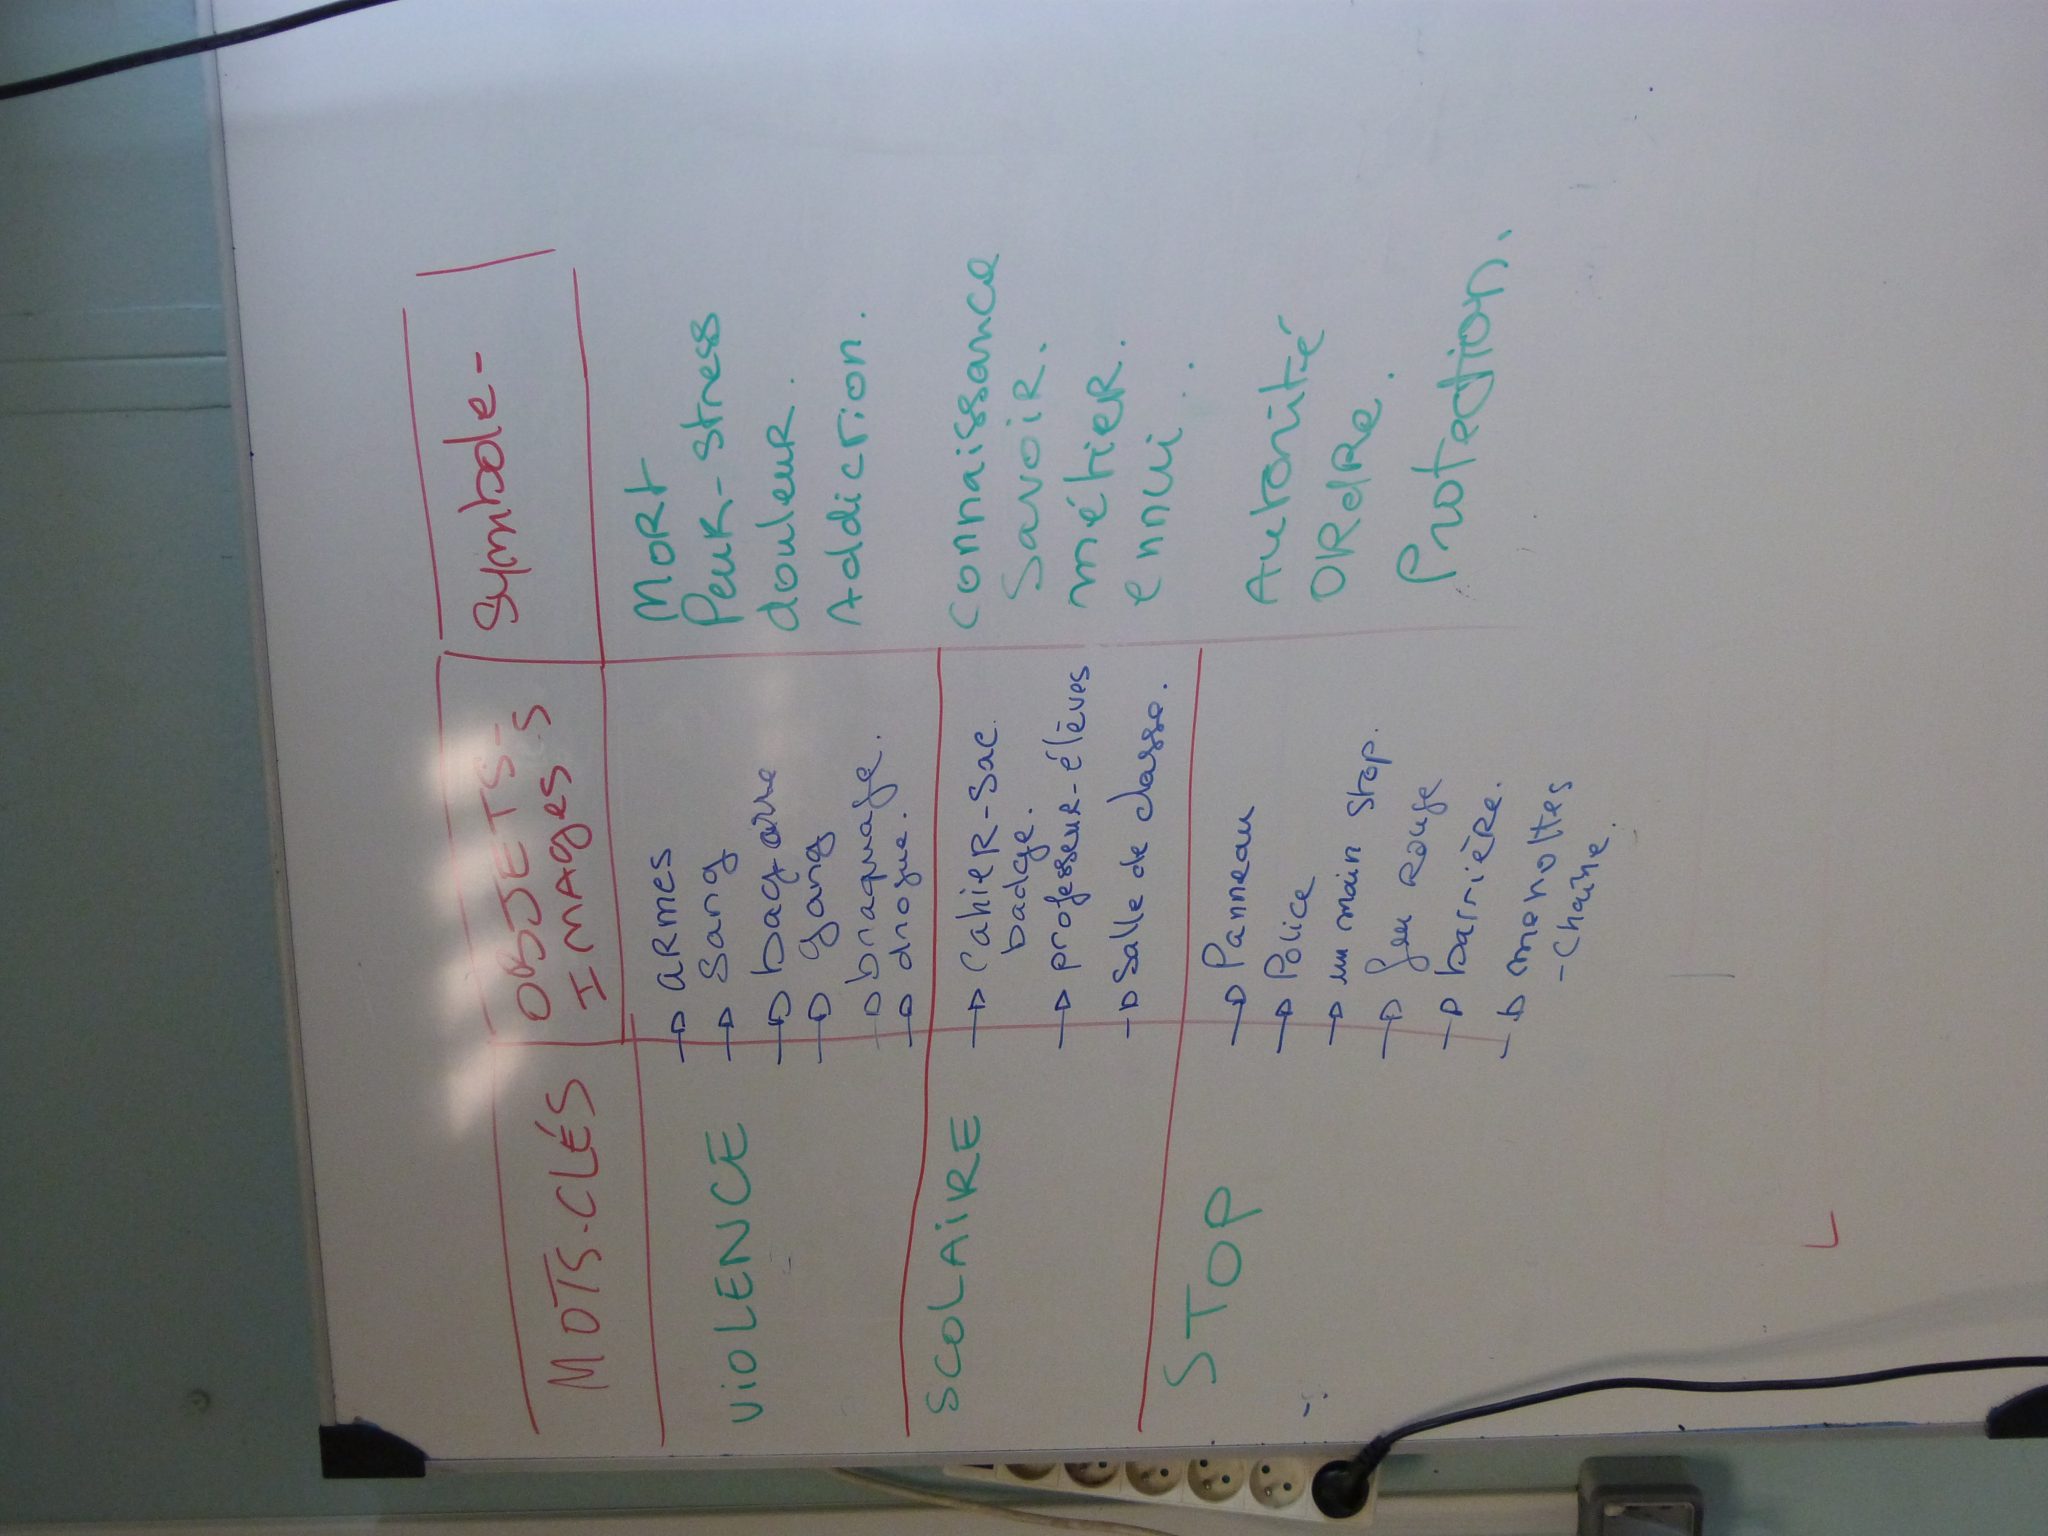 MOTS-CLÉS
OBJETS-
IMAGES.S
Symbole-
VIOLENCE
→ ARMES
→ Sang
→ bagarre
→ gang
→ braquage.
→ drogue.
MORt
Peur-stress
douleur.
Addiction.
SCOLAIRE
→ CahieR-Sac
badge.
→ professeur-élèves
→ Salle de classe.
connaissance
Savoir.
métier.
ennui...
STOP
→ Panneau
→ Police
→ un main Stop.
→ feu Rouge
→ barrière.
→ menottes
- Chaîne.
Autorité
ORdRe.
Protection.